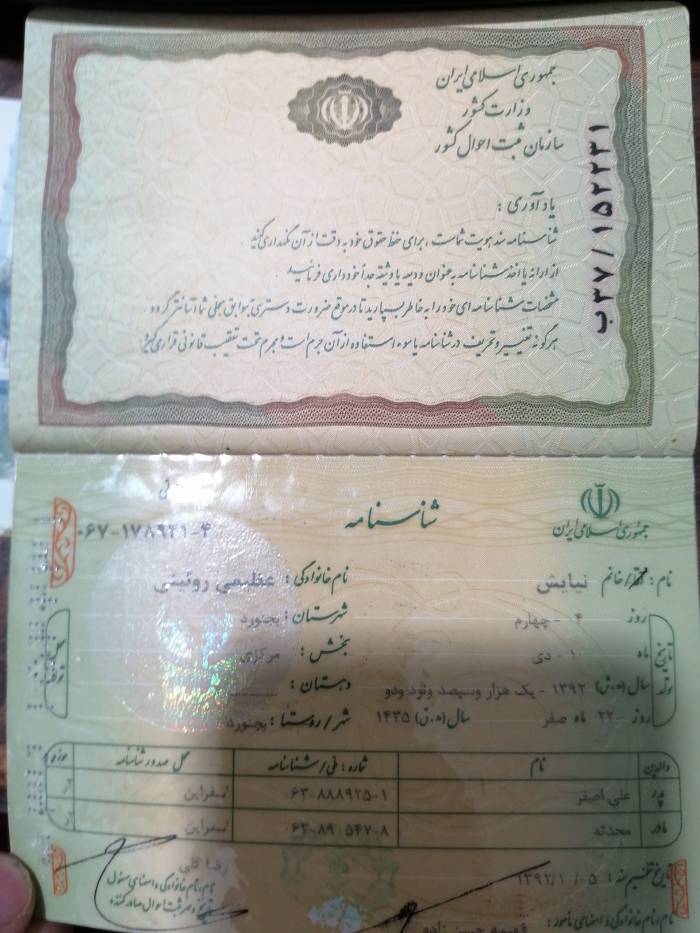 جمهوری اسلامی ایران
وزارت کشور
سازمان ثبت احوال کشور
ب۳۷/۱۵۲۲۳۱
یادآوری :
شناسنامه سند هویت شماست ، برای حفظ حقوق خود به دقت از آن نگهداری کنید .
از ارائه یا اخذ شناسنامه به عنوان ودیعه یا وثیقه جداً خودداری فرمائید .
مشخصات شناسنامه ای خود را به خاطر بسپارید تا در موقع ضرورت دسترسی به سوابق سجلی شما آسانتر گردد .
هرگونه تغییر و تحریف در شناسنامه یا سوء استفاده از آن جرم است و مجرم تحت تعقیب قانونی قرار می گیرد .
جمهوری اسلامی ایران
شناسنامه
۰۶۷-۱۷۸۹۲۱-۴
نام : آقا/خانم نیایش نام خانوادگی : عظیمی روئینی
تاریخ تولد
روز ۰۴ - چهارم شهرستان : بجنورد
ماه ۱۰ - دی بخش : مرکزی
سال (ه.ش) ۱۳۹۲ - یک هزار و سیصد و نود و دو دهستان :
روز ۲۲ ماه صفر سال (ه.ق) ۱۴۳۵ شهر/روستا : بجنورد
محل تولد
والدین نام شماره : ملی/شناسنامه محل صدور شناسنامه حوزه
پدر علی اصغر ۰۶۳-۸۸۸۹۲۵-۱ اسفراین
مادر محدثه ۰۶۳-۸۹۰۵۴۷-۸ اسفراین
تاریخ تنظیم سند : ۱۳۹۲/۱۰/۰۵
رضا کلی
نام، نام خانوادگی و امضای مسئول
تاریخ و مهر ثبت احوال صادر کننده
نام، نام خانوادگی و امضای مامور :